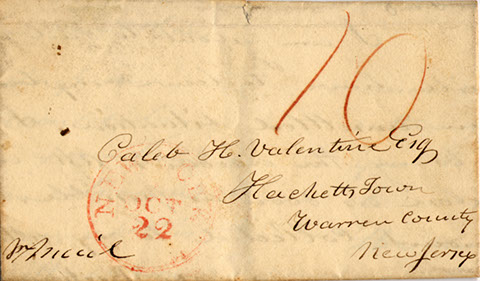 10
Caleb H. Valentine Esq
Hacketts Town
Warren County
New Jersey
NEW YORK
OCT
22